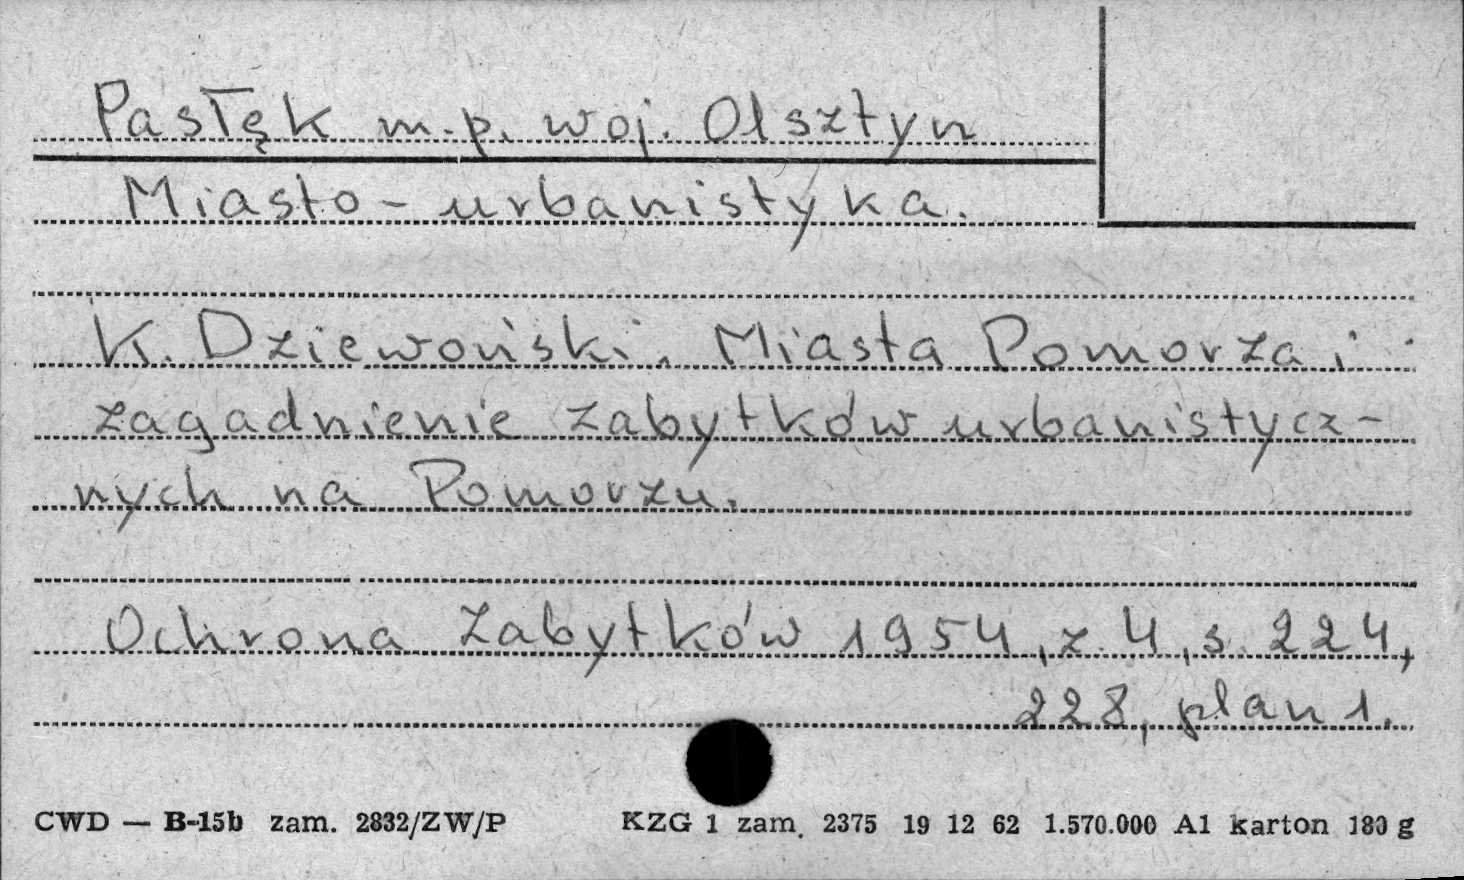 Pasłęk m.p. woj. Olsztyn
Miasto - urbanistyka.
K. Dziewoński. Miasta Pomorza i
zagadnienie zabytków urbanistycz-
nych na Pomorzu.
Ochrona Zabytków 1954, z. 4, s. 224,
228, plan 1.
CWD — B-15b zam. 2832/ZW/P KZG 1 zam. 2375 19 12 62 1.570.000 A1 karton 180 g